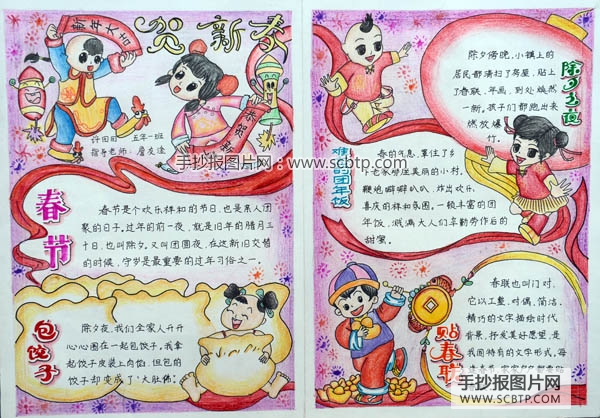 新年大吉
贺新春
恭贺新
许田田 五年一班
指导老师：詹友逵
手抄报图片网：www.scbtp.com
春节
春节是个欢乐祥和的节日，也是亲人团
聚的日子。过年的前一夜，就是旧年的腊月三
十日，也叫除夕，又叫团圆夜，在这新旧交替
的时候，守岁是最重要的过年习俗之一。
包饺子
除夕夜，我们全家人开开
心心围在一起包饺子，我拿
起饺子皮装上肉馅，但包的
饺子却变成了“大肚佛”。
除夕之夜
除夕傍晚，小镇上的
居民都清扫了房屋，贴上
了春联、年画，到处焕然
一新。孩子们都跑出来
燃放爆
竹。
难忘的团年饭
春的气息，笼住了乡
下老家那座美丽的小村，
鞭炮噼噼叭叭，炸出欢乐、
喜庆的祥和氛围。一顿丰富的团
年饭，溅满大人们辛勤劳作后的
甜蜜。
贴春联
春联也叫门对，
它以工整、对偶、简洁、
精巧的文字描绘时代
背景，抒发美好愿望，是
我国特有的文字形式，每
手抄报图片网
WWW.SCBTP.COM